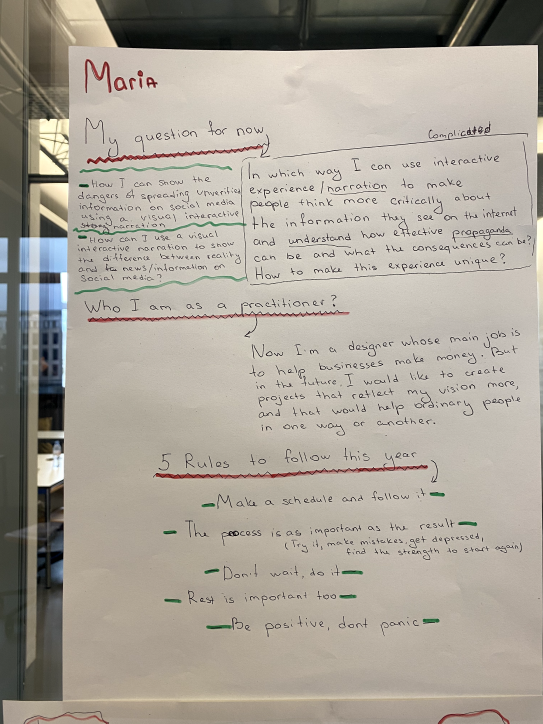 Maria
My question for now
Complicated
- How I can show the
dangers of spreading unverified
information on social media
using a visual interactive
narration
- How can I use a visual
interactive narration to show
the difference between reality
and news/information on
social media?
In which way I can use interactive
experience/narration to make
people think more critically about
the information they see on the internet
and understand how effective propaganda
can be and what the consequences can be?
How to make this experience unique?
Who I am as a practitioner?
Now I'm a designer whose main job is
to help businesses make money. But
in the future, I would like to create
projects that reflect my vision more,
and that would help ordinary people
in one way or another.
5 Rules to follow this year
- Make a schedule and follow it -
- The process is as important as the result -
(Try it, make mistakes, get depressed,
find the strength to start again)
- Don't wait, do it -
- Rest is important too -
- Be positive, dont panic -